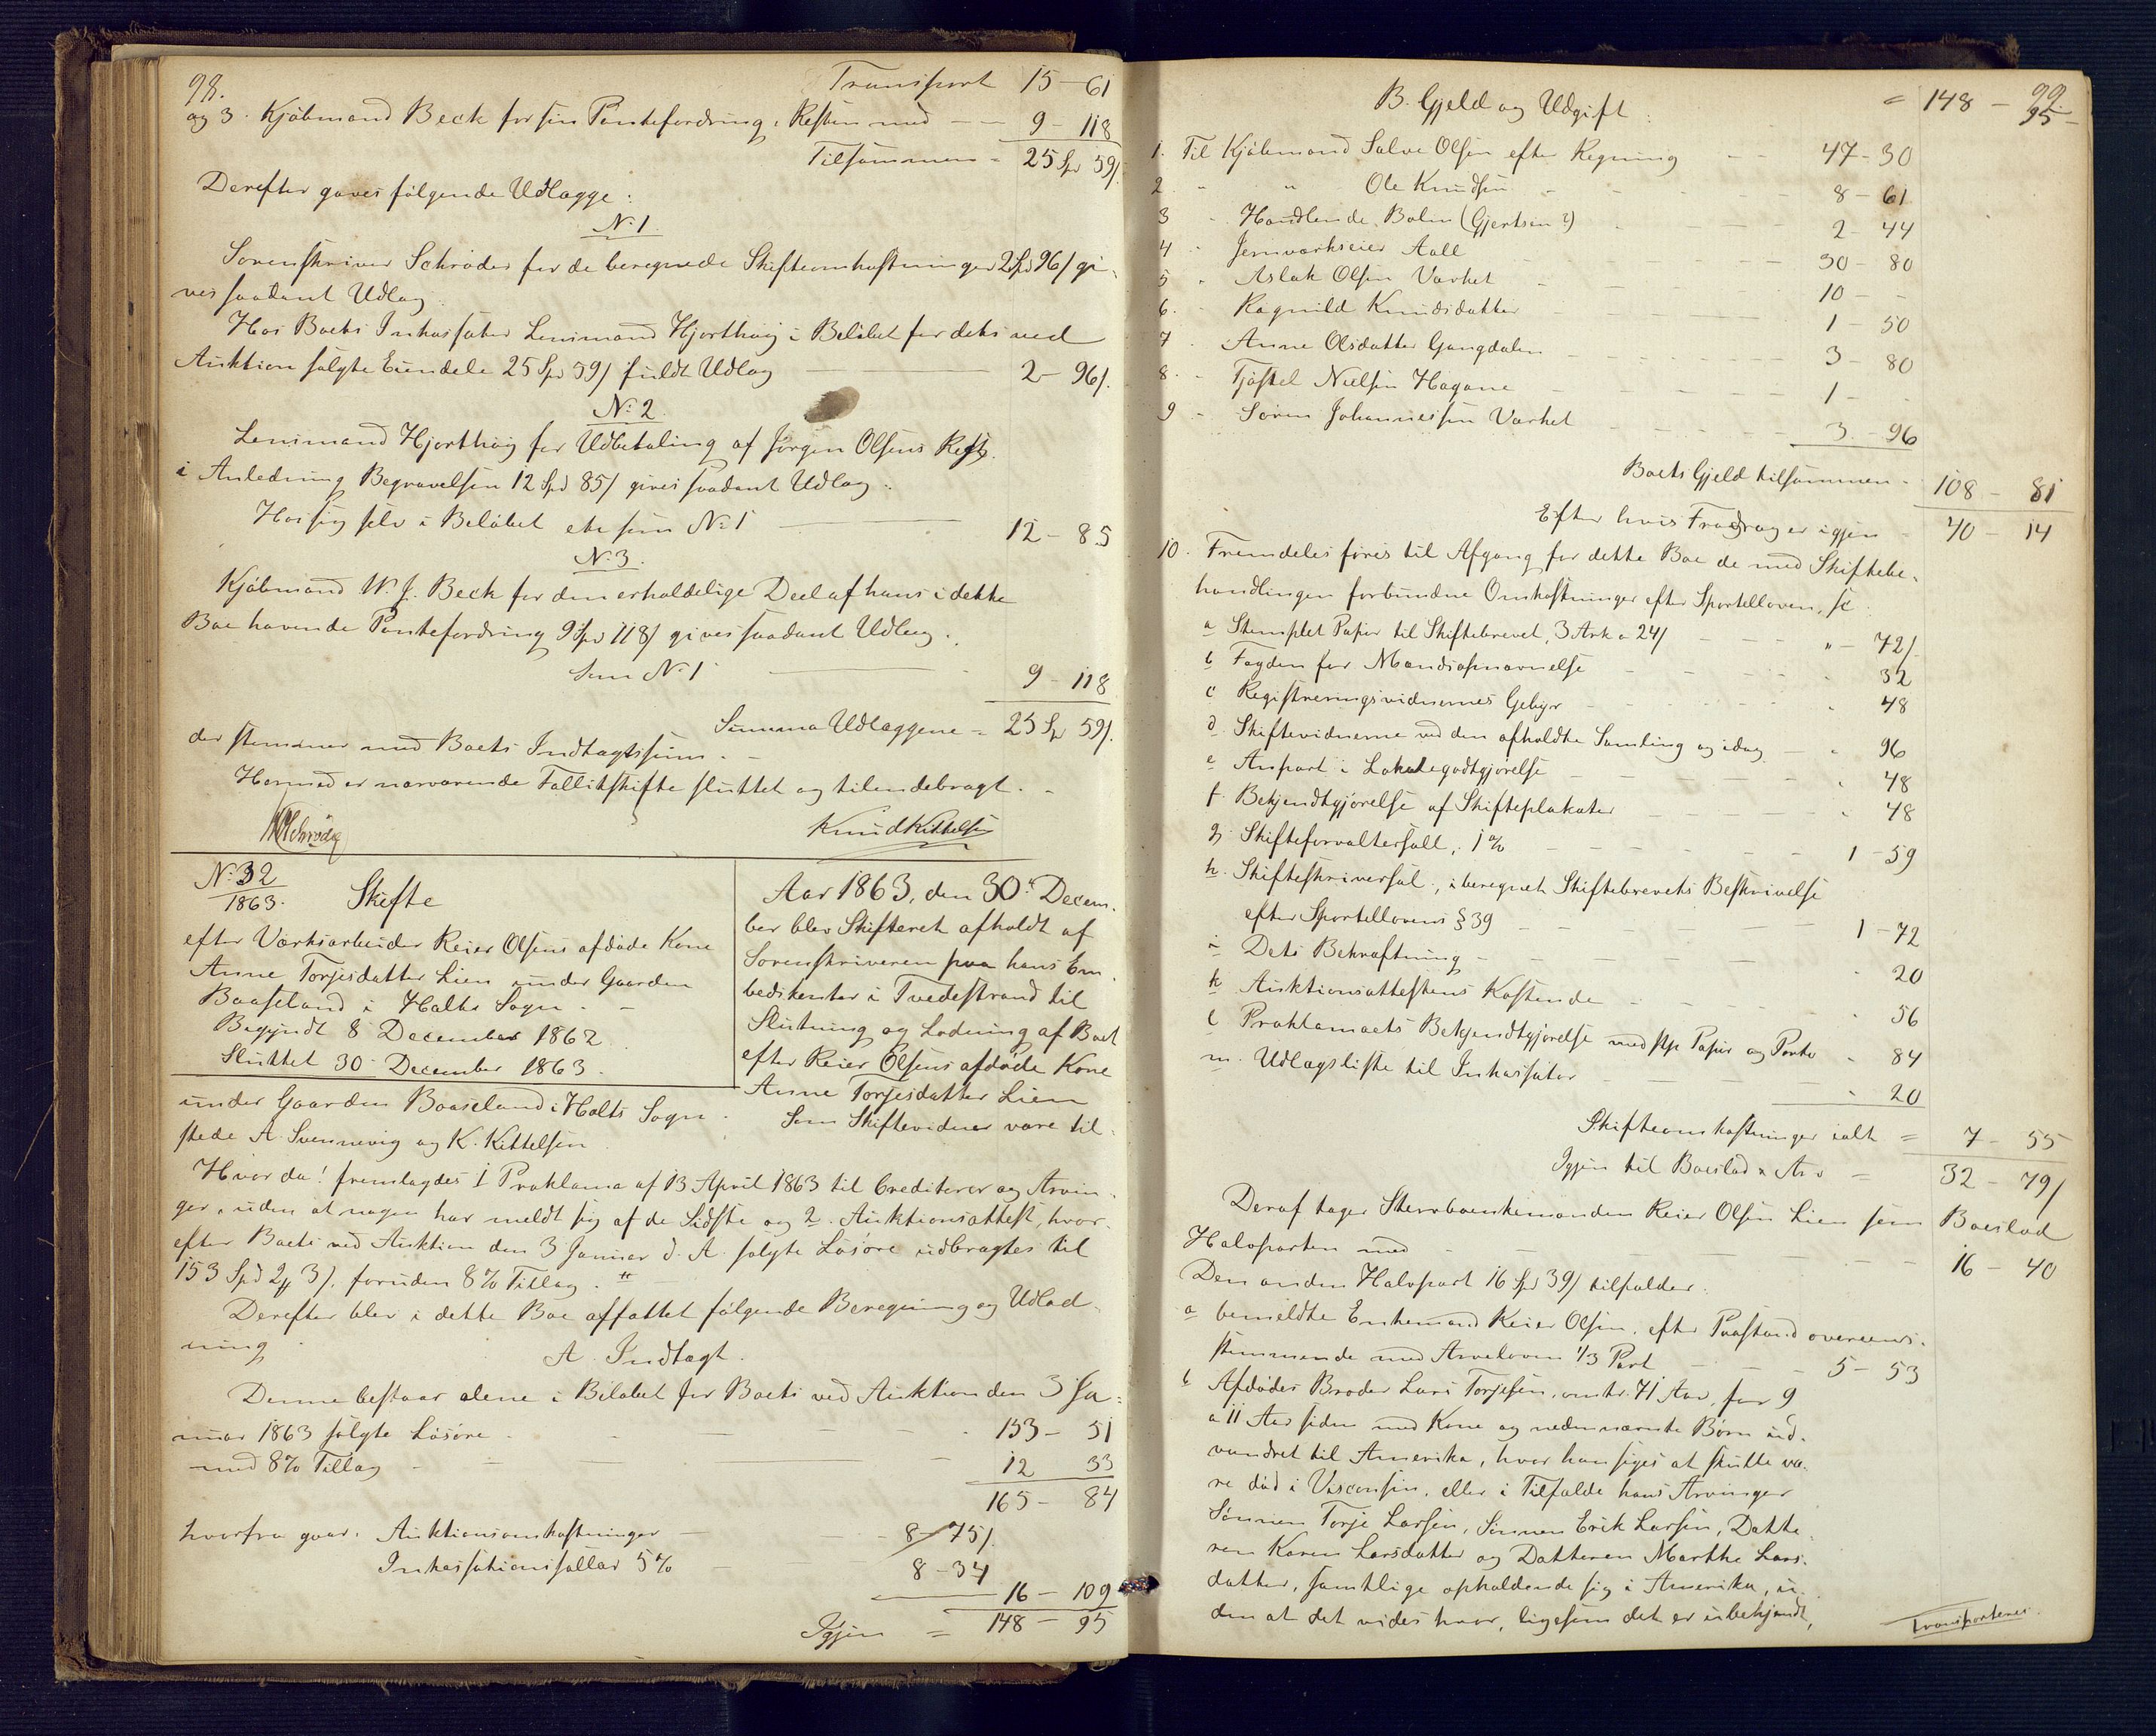 98.
Transport 15 - 61
og 3. Kjöbmand Beck for sin Pantefordring, Resten med - - 9 - 118
Tilsammen = 25 Spd 59/.
Derefter gaves følgende Udlægge:
No 1.
Sorenskriver Schrøder for de beregnede Skifteomkostninger 2 Spd 96/ gi-
ves saadant Udlæg.
Hos Boets Inkassator Lensmand Hjorthøi i Beløbet for dets ved
Auktion solgte Eiendele 25 Spd 59/ fuldt Udlæg 2 - 96/.
No 2.
Lensmand Hjorthøi for Udbetaling af Jørgen Olsens Regn.
i Anledning Begravelsen 12 Spd 85/ gives saadant Udlæg.
Hos sig selv i Beløbet etc som No 1 12 - 85
No 3.
Kjöbmand W. J. Beck for den erholdelige Deel af hans i dette
Boe havende Pantefordring 9 Spd 118/ gives saadant Udlæg.
som No 1 9 - 118
Summa Udlæggene = 25 Sp 59/.
der stemmer med Boets Indtægtssum. -
Hermed er nærværende Fallitskifte sluttet og tilendebragt. -
Schrøder Knud Kittelsen
No 32
1863. Skifte
efter Værksarbeider Reier Olsens afdøde Kone
Anne Torjesdatter Lien under Gaarden
Baaseland i Holts Sogn. -
Begyndt 8 December 1862.
Sluttet 30 December 1863.
Aar 1863, den 30te Decem-
ber blev Skifteret afholdt af
Sorenskriveren paa hans Em-
bedskontor i Tvedestrand til
Slutning og Lodning af Boet
efter Reier Olsens afdøde Kone
Anne Torjesdatter Lien
under Gaarden Baaseland i Holts Sogn.
Som Skiftevidner vare til-
stede A. Svennevig og K. Kittelsen.
Hvor da! fremlagdes 1 Proklama af 13 April 1863 til Creditorer og Arvin-
ger, uden at nogen har meldt sig af de Sidste og 2. Auktionsattest, hvor-
efter Boets ved Auktion den 3 Januar d. A. solgte Løsøre udbragtes til
153 Spd 2 3/. foruden 8% Tillæg.
Derefter blev i dette Boe affattet følgende Beregning og Udlod-
ning
A. Indtægt.
Denne bestaar alene i Beløbet for Boets ved Auktion den 3 Ja-
nuar 1863 solgte Løsøre - 153 - 51
med 8% Tillæg - 12 33
165 - 84
hvorfra gaar: Auktionsomkostninger - 8 - 75/.
Inkassationssallær 5% - 8 - 34
16 - 109
Igjen = 148 - 95
99
B. Gjeld og Udgift: = 148 - 95 -
1. Til Kjöbmand Salve Olsen efter Regning - - 47 - 30
2. " " Ole Knudsen - 8 - 61
3 " Handlende Bolm (Gjertsen?) - 2 - 44
4 " Jernværkseier Aall - 30 - 80
5 " Aslak Olsen Værket - 10 - -
6. " Ragnild Knudsdatter - 1 - 50
7 " Anne Olsdatter Gangdalen - 3 - 80
8. " Tjøstel Nielsen Hagane - 1 - -
9 " Søren Johannessen Værket - 3 - 96
Boets Gjeld tilsammen - 108 - 81
Efter hvis Fradrag er igjen - 40 - 14
10. Fremdeles føres til Afgang for dette Boe de med Skiftebe-
handlingen forbundne Omkostninger efter Sportelloven, sc:
a Stemplet Papir til Skiftebrevet, 3 Ark a 24/ " - 72/.
b Fogden for Mandsopnævnelse - 32
c Registreringsvidnernes Gebyr - 48
d. Skiftevidnerne ved den afholdte Samling og idag - 96
e Anpart i Lokalegodtgjørelse - 48
f. Bekjendtgjørelse af Skifteplakater - 48
g. Skifteforvaltersall., 1% - 1 - 59
h. Skifteskriversal., iberegnet Skiftebrevets Beskrivelse
efter Sportellovens § 39 - 1 - 72
i Dets Bekræftning - 20
k Auktionsattestens Kostende - 56
l Proklamaets Bekjendtgjørelse med stp. Papir og Porto - 84
m. Udlægsliste til Inkassator - 20
Skifteomkostninger ialt = 7 - 55
Igjen til Boeslod & Arv = 32 - 79/
Deraf tager Stervboenkemanden Reier Olsen Lien sin Boeslod
Halvparten med - 16 - 40
Den anden Halvpart 16 Spd 39/ tilfalder:
a bemeldte Enkemand Reier Olsen, efter Paastand overeens-
stemmende med Arveloven 1/3 Part - 5 - 53
b Afdødes Broder Lars Torjesen, omtr. 71 Aar, for 9
a 11 Aar siden med Kone og nedennævnte Børn ud-
vandret til Amerika, hvor han siges at skulle væ-
re død i Visconsin, eller i Tilfælde hans Arvinger
Sønnen Torje Larsen, Sønnen Erik Larsen, Datte-
ren Karen Larsdatter og Datteren Marthe Lars-
datter, samtlige opholdende sig i Amerika, u-
den at det vides hvor, ligesom det er ubekjendt,
Transporteres.